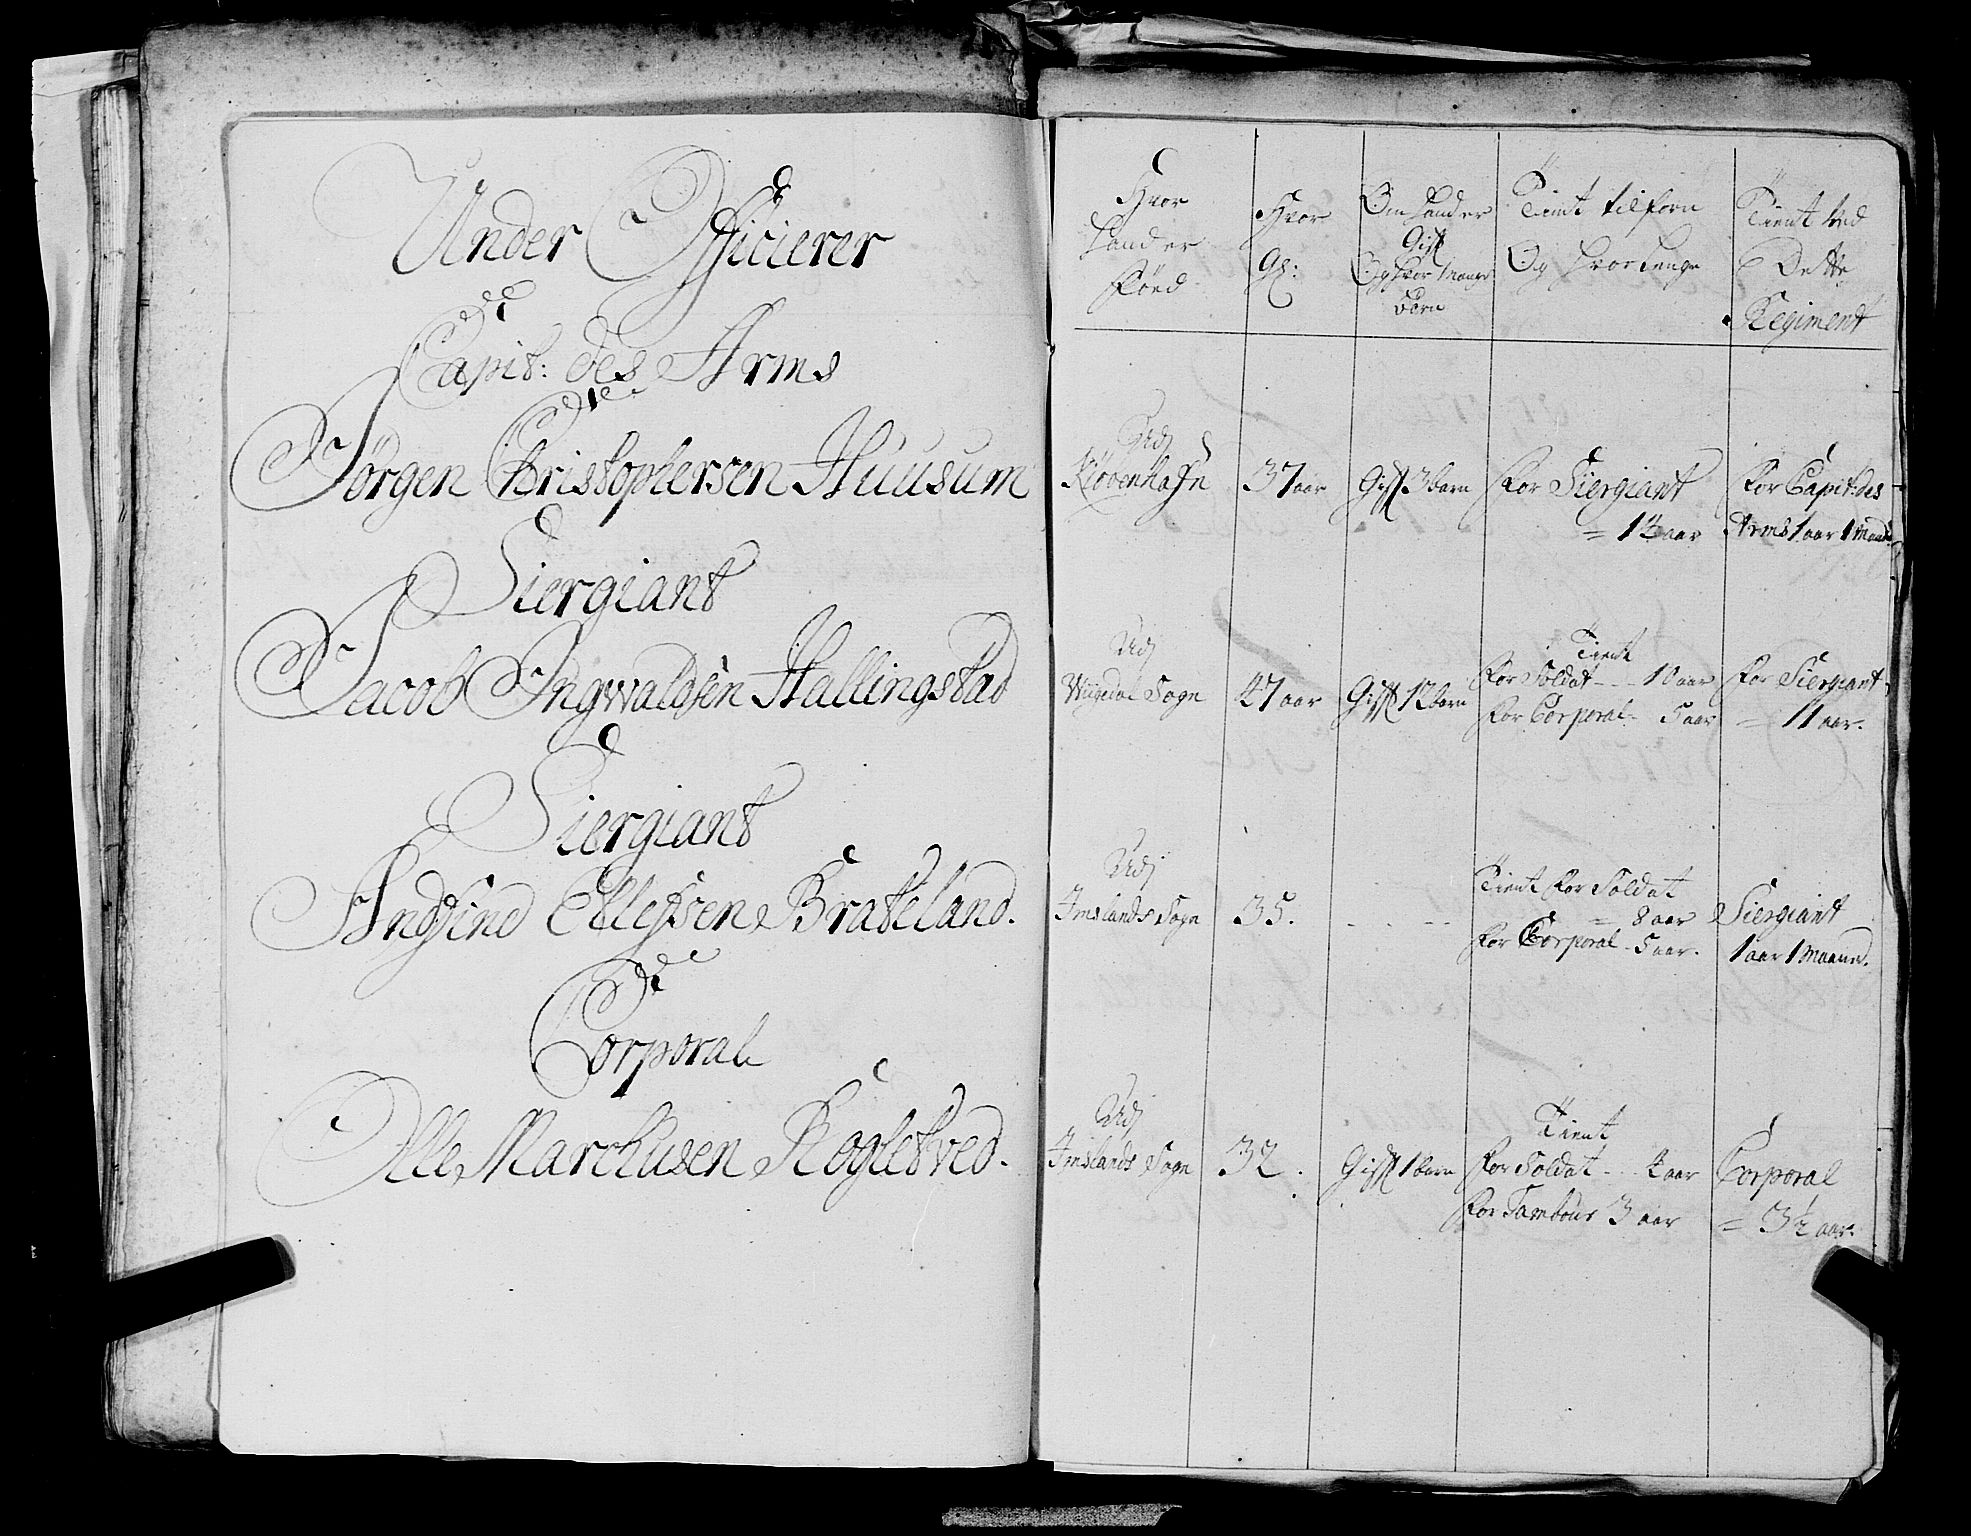 Under Officierer
Capit: des Arms
Jörgen Christophersen Huusum
Siergiant
Jacob Ingwaldsen Hallingstad
Siergiant
Andfind Ellefsen Brateland.
Corporal
Olle Marchusen Røgletved.
Hvor
hand er
föed
Hvor
Gl:
Om hand er
Gift
Og hvor mange
börn
Tient tilforn
Og hvor lenge
Tient ved
Dette
Regiment
Udj
Kiöbenhafn
37 aar
Gift 3 barn
for Siergiant
= 13 aar
for Capit: des
Arms 1 aar 1 Maand
Udj
Wigedal Sogn
47 aar
Gift 12 barn
Tient
for Soldat - - 10 aar
for Corporal - 5 aar
for Siergiant
= 11 aar.
Udj
Imslands Sogn
35.
- - - -
Tient for Soldat
= 8 aar
for Corporal - 5 aar.
Siergiant
1 aar 1 Maaned.
Udj
Imslands Sogn
32.
Gift 1 barn
Tient
for Soldat - - 4 aar
for Tambour 3 aar
Corporal
= 3½ aar.